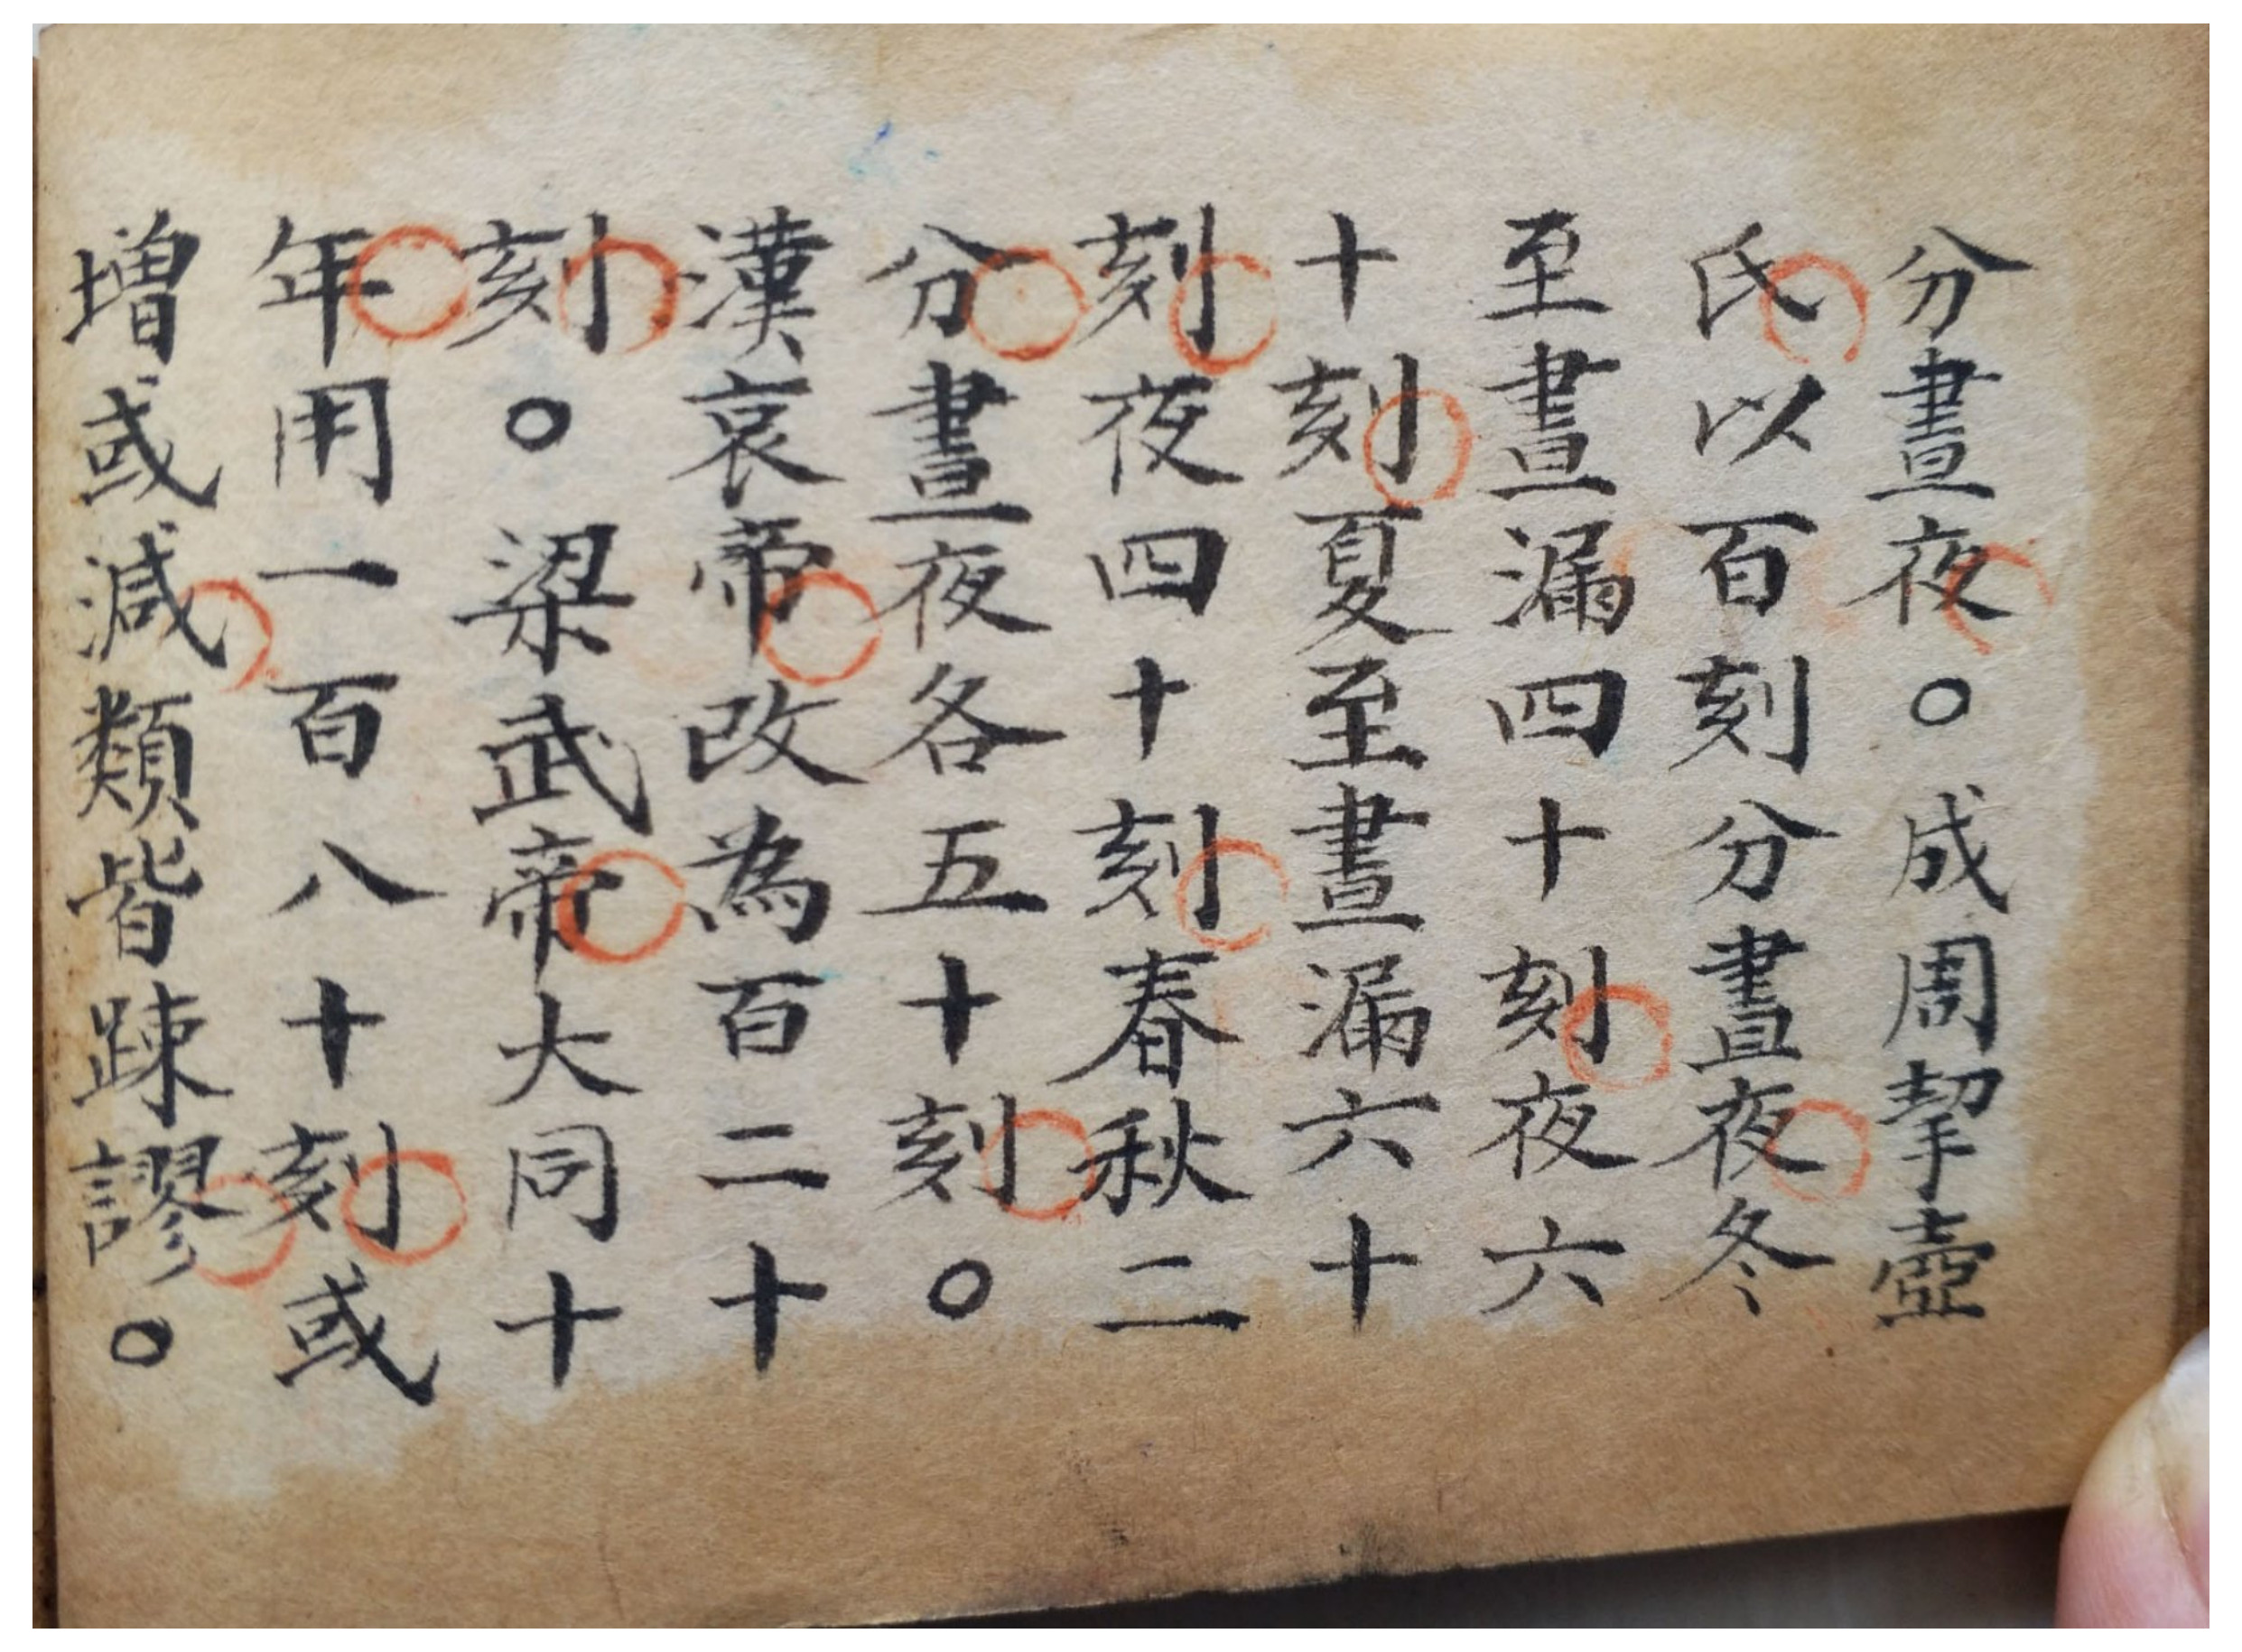 分晝夜○成周挈壺
氏以百刻分晝夜冬
至晝漏四十刻夜六
十刻夏至晝漏六十
刻夜四十刻春秋二
分晝夜各五十刻○
漢哀帝改為百二十
刻○梁武帝大同十
年用一百八十刻或
増或減類皆踈謬○